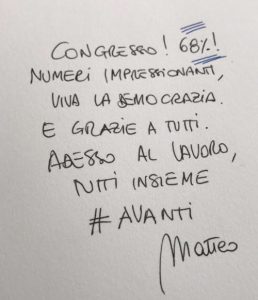 CONGRESSO! 68%!
NUMERI IMPRESSIONANTI,
VIVA LA DEMOCRAZIA.
E GRAZIE A TUTTI.
ADESSO AL LAVORO,
TUTTI INSIEME
#AVANTI
Matteo